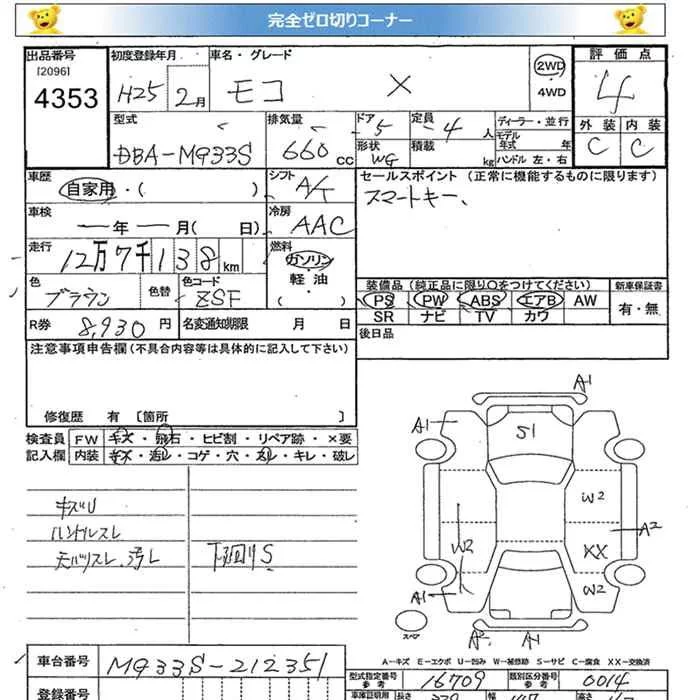 完全ゼロ切りコーナー
出品番号 初度登録年月 車名・グレード 評価点
[2096]
4353 H25 2月 モコ X 2WD 4WD 4
型式 排気量 ドア 定員 ディーラー・並行 外装 内装
DBA-M933S 660cc 5 4人 モデル年式 年 C C
形状 WG 積載 kg ハンドル 左・右
車歴 自家用・( ) シフト A/T セールスポイント (正常に機能するものに限ります)
スマートキー、
車検 ー年ー月( 日) 冷房 AAC
走行 12万7千138km 燃料 ガソリン
軽・油
( )
色 ブラウン 色替 色コード ZSF
装備品 (純正品に限り○をつけてください) 新車保証書
PS PW ABS エアB AW 有・無
SR ナビ TV カワ
R券 8,930円 名変通知期限 月 日 後日品
注意事項申告欄(不具合内容等は具体的に記入して下さい)
修復歴 有 [箇所 ]
検査員 FW キズ・飛石・ヒビ割・リペア跡・×要
記入欄 内装 キズ・汚レ・コゲ・穴・スレ・キレ・破レ
キズU
ハンドルスレ
天バリスレ、汚レ 下回りS
A1
A1 S1
W2
A2
W2 XX
W2
A1
スペア
A2 A1
A-キズ E-エクボ U-凹み W-補修跡 S-サビ C-腐食 XX-交換済
車台番号 M933S-212351 型式指定番号 参考 16709 類別区分番号 参考 0014
登録番号 車庫証明用 長さ 339 幅 147 高さ